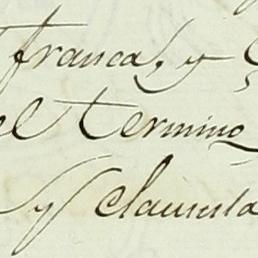 franca, y
el termino
y clausula